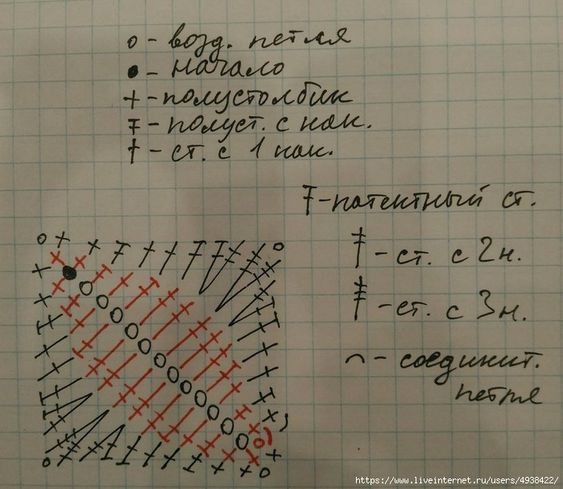 о - возд. петля
● - начало
+ - полустолбик
- полуст. с нак.
† - ст. с 1 нак.
- патентный ст.
- ст. с 2н.
- ст. с 3н.
⌒ - соединит.
петля
https://www.liveinternet.ru/users/4938422/